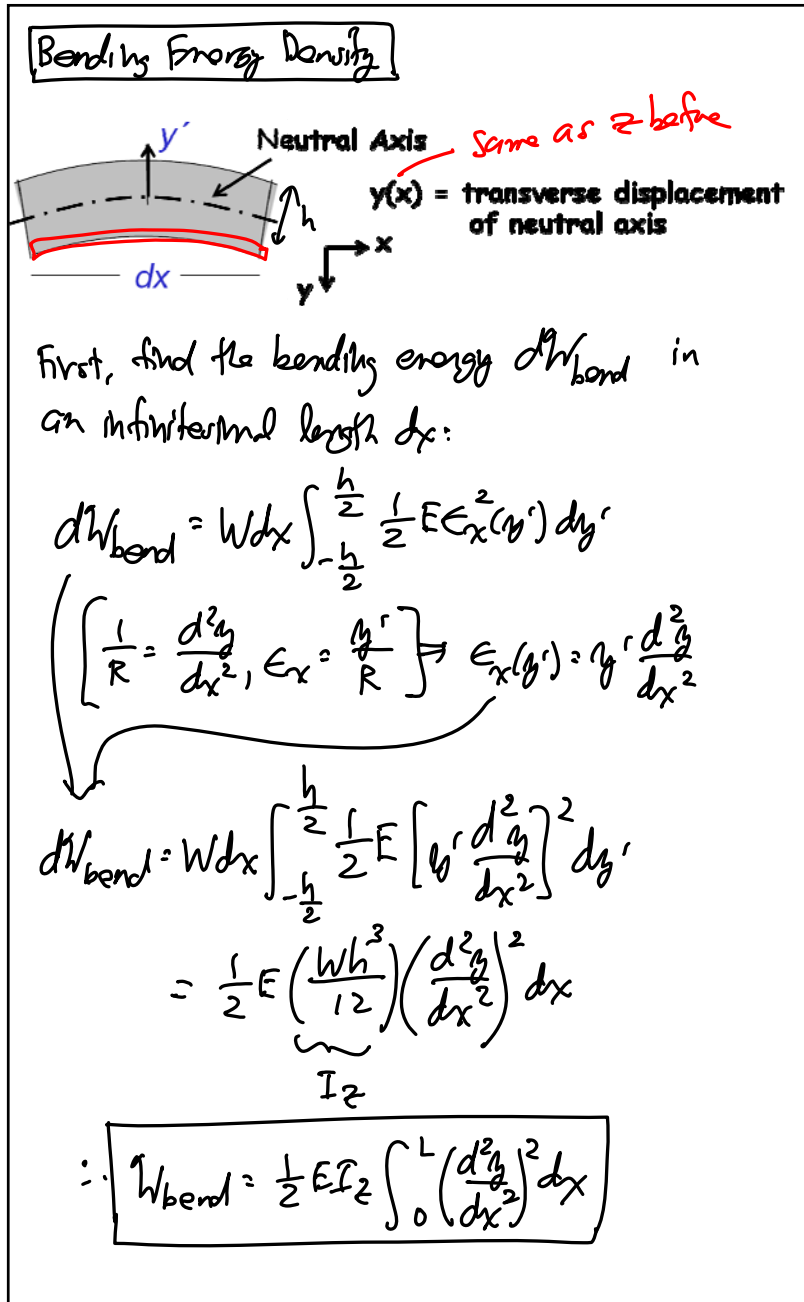 Bending Energy Density
y′
Neutral Axis
same as z before
y(x) = transverse displacement
of neutral axis
h
x
dx
y
First, find the bending energy dW_bend in
an infinitesimal length dx:
dW_bend = W dx ∫_{-h/2}^{h/2} 1/2 E ϵ_x²(y′) dy′
[1/R = d²y/dx², ϵ_x = y′/R] ⇒ ϵ_x(y′) = y′ d²y/dx²
dW_bend = W dx ∫_{-h/2}^{h/2} 1/2 E [y′ d²y/dx²]² dy′
= 1/2 E (Wh³/12) (d²y/dx²)² dx
I_z
∴ W_bend = 1/2 E I_z ∫_0^L (d²y/dx²)² dx